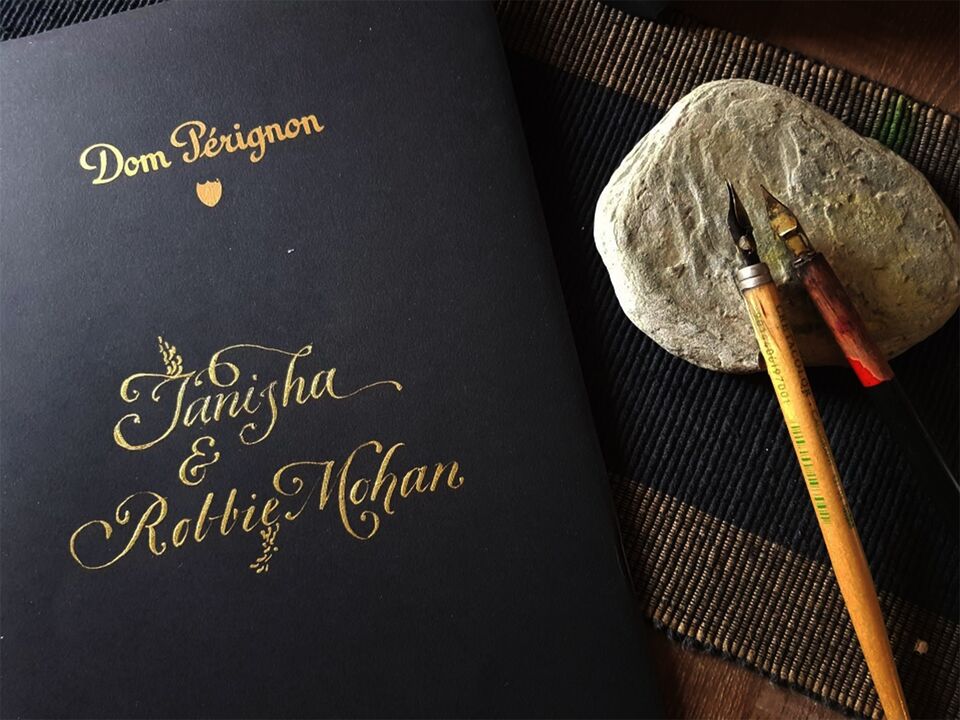 Dom Pérignon
Tanisha
&
Robbie Mohan